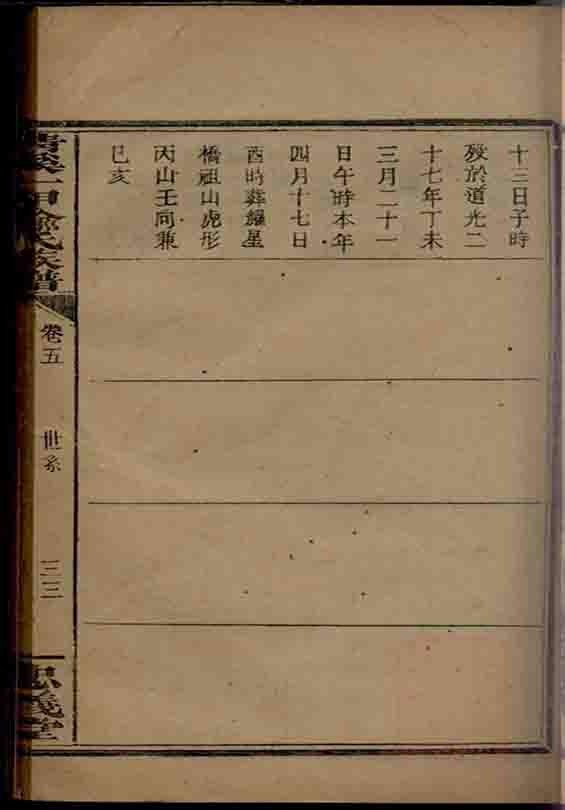 十三日子時
歿於道光二
十七年丁未
三月二十一
日午時本年
四月十七日
酉時葬繇星
橋祖山虎形
丙山壬向兼
巳亥
氏家譜
卷五
世系
三三
忠義堂